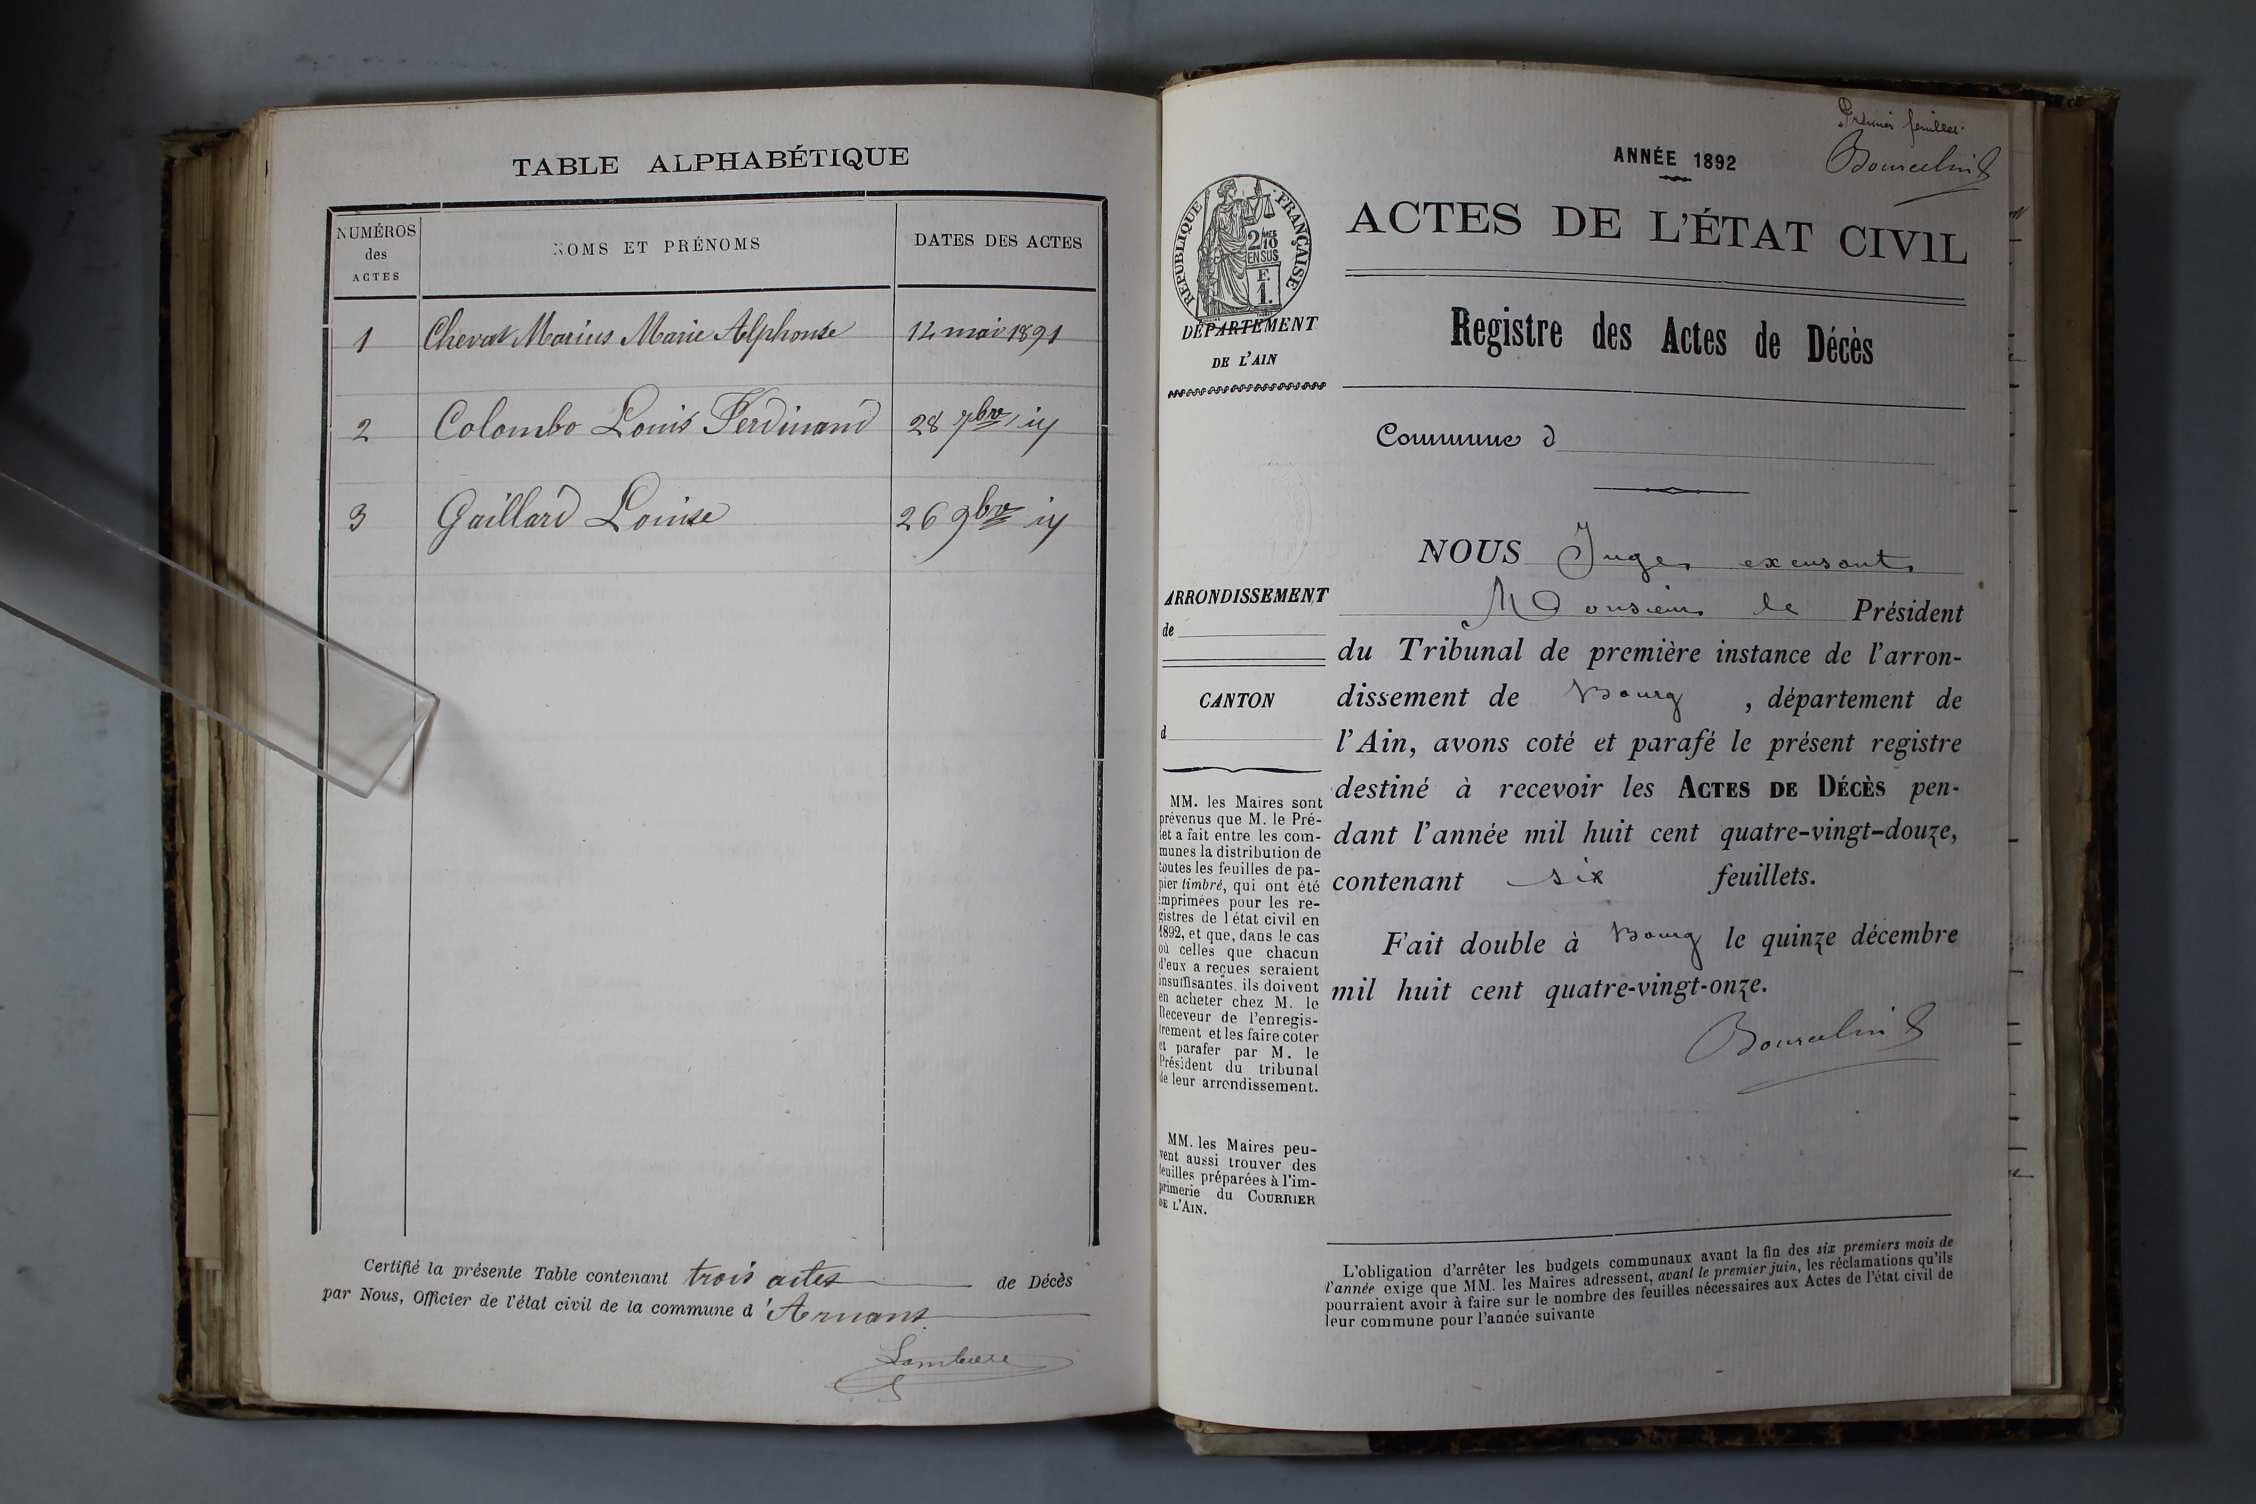 TABLE ALPHABÉTIQUE
NUMÉROS
des
ACTES
NOMS ET PRÉNOMS
DATES DES ACTES
1 Chevat Marius Marie Alphonse 12 mai 1891
2 Colombo Louis Ferdinand 28 7bre iy
3 Gaillard Louise 26 9bre iy
Certifié la présente Table contenant trois actes de Décès
par Nous, Officier de l'état civil de la commune d'Arnans
Premier feuillet
ANNÉE 1892
RÉPUBLIQUE FRANÇAISE
2/10
EN SUS
F.
1.
ACTES DE L'ÉTAT CIVIL
DÉPARTEMENT
DE L'AIN
Registre des Actes de Décès
Commune d
ARRONDISSEMENT
de
CANTON
d
MM. les Maires sont
prévenus que M. le Pré-
fet a fait entre les com-
munes la distribution de
toutes les feuilles de pa-
pier timbré, qui ont été
imprimées pour les re-
gistres de l'état civil en
1892, et que, dans le cas
où celles que chacun
d'eux a reçues seraient
insuffisantes, ils doivent
en acheter chez M. le
Receveur de l'enregis-
trement et les faire coter
et parafer par M. le
Président du tribunal
de leur arrondissement.
MM. les Maires peu-
vent aussi trouver des
feuilles préparées à l'im-
primerie du COURRIER
DE L'AIN.
NOUS Juge excusant
Monsieur le Président
du Tribunal de première instance de l'arron-
dissement de Bourg, département de
l'Ain, avons coté et parafé le présent registre
destiné à recevoir les ACTES DE DÉCÈS pen-
dant l'année mil huit cent quatre-vingt-douze,
contenant six feuillets.
Fait double à Bourg le quinze décembre
mil huit cent quatre-vingt-onze.
L'obligation d'arrêter les budgets communaux avant la fin des six premiers mois de
l'année exige que MM. les Maires adressent, avant le premier juin, les réclamations qu'ils
pourraient avoir à faire sur le nombre des feuilles nécessaires aux Actes de l'état civil de
leur commune pour l'année suivante